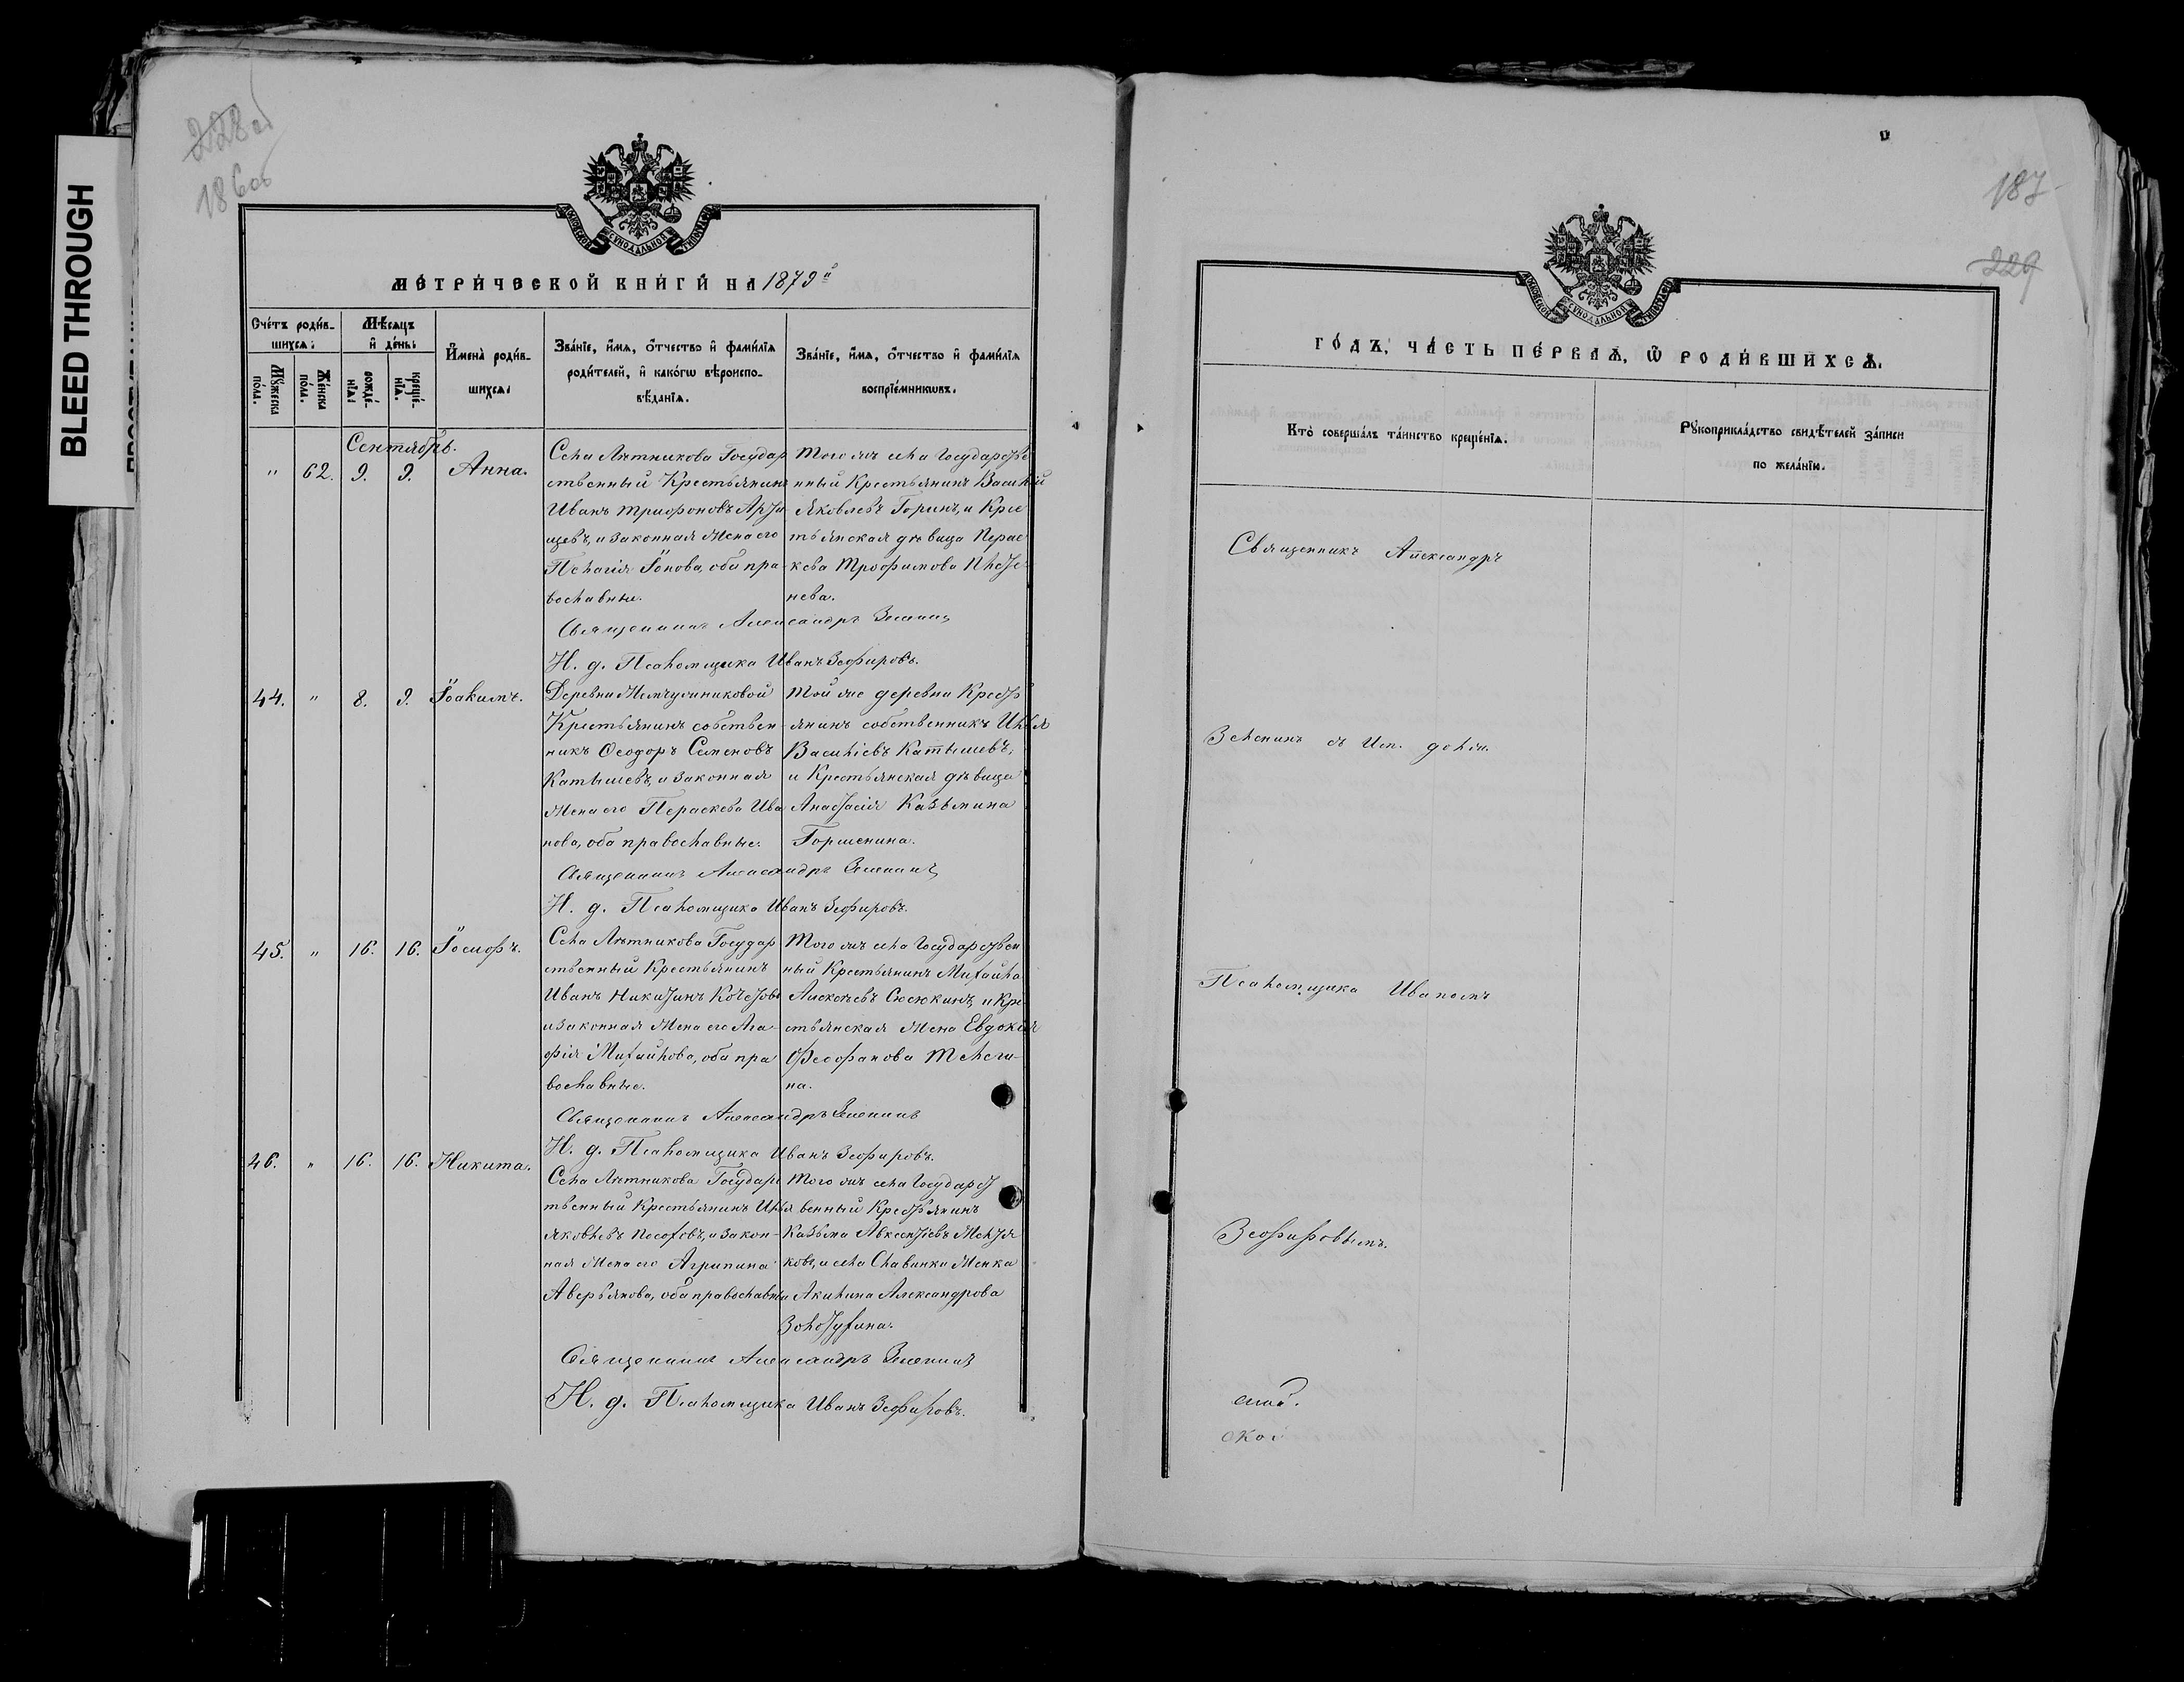 BLEED THROUGH
228об
186об
МОСКОВСКОЙ СУНОДАЛЬНОЙ ТИПОГРАФІИ
МЕТРИ́ЧЕСКОЙ КНИ́ГИ НА 1879й
Сче́тъ роди́в-
шихся:
Мѣ́сяцъ
и҆ де́нь:
Му́жеска
по́ла.
Же́нска
по́ла.
рожде́-
нїѧ:
креще́-
нїѧ.
И҆мена̀ роди́в-
шихсѧ:
Зва́нїе, и҆́мѧ, ѻ҆́тчество и҆ фами́лїѧ
роди́телей, и҆ како́гѡ вѣроиспо-
вѣ́данїѧ.
Зва́нїе, и҆́мѧ, ѻ҆́тчество и҆ фами́лїѧ
воспрїе́мникѡвъ.
Сентябрь.
" 62. 9. 9. Анна.
Села Лѣтникова Государ
ственный Крестьянинъ
Иванъ Трифоновъ
и законная жена его
Пелагія Іонова, оба пра-
вославные.
Того жъ села Государстве
нный Крестьянинъ Василій
Яковлевъ Горинъ, и Кре
стьянская дѣвица Перас
кева Трофимова
нева.
Священникъ Александръ Зеленинъ
И. д. Псаломщика Иванъ Зефировъ.
44. " 8. 9. Іоакимъ.
Деревни Жемчужниковой
Крестьянинъ собствен-
никъ Ѳеодоръ Семеновъ
Катышевъ, и законная
жена его Пераскева Ива
нова, оба православные.
Той же деревни Крест
янинъ собственникъ Илья
Василіевъ Катышевъ,
и Крестьянская дѣвица
Анастасія Казьмина
Горшенина.
Священникъ Александръ Зеленинъ
И. д. Псаломщика Иванъ Зефировъ.
45. " 16. 16. Іосифъ.
Села Лѣтникова Государ
ственный Крестьянинъ
Иванъ Никитинъ Кочетовъ
и законная жена его Ага-
фія Михайлова, оба пра
вославные.
Того жъ села Государствен
ный Крестьянинъ Михаилъ
Алексѣевъ Сюсюкинъ, и Кре
стьянская жена Евдокія
Феофанова Телеги-
на.
Священникъ Александръ Зеленинъ
И. д. Псаломщика Иванъ Зефировъ.
46. " 16. 16. Никита.
Села Лѣтникова Государс
твенный Крестьянинъ Илья
Яковлевъ и закон-
ная жена его Агрипина
Аверьянова, оба православны
Того жъ села Государст
венный Крестьянинъ
Казьма Авксентіевъ
ковъ, и села Славинки женка
Акилина Александрова
Золотухина.
Священникъ Александръ Зеленинъ
И. д. Псаломщика Иванъ Зефировъ.
187
229
МОСКОВСКОЙ СУНОДАЛЬНОЙ ТИПОГРАФІИ
ГО́ДЪ, ЧА́СТЬ ПЕ́РВАѦ, Ѽ РОДИ́ВШИХСѦ.
Кто̀ соверша́лъ та́инство креще́нїѧ.
Рꙋкоприкла́дство свидѣ́телей за́писи
по жела́нїю.
Священникъ Александръ
Зеленинъ съ Исп. долж.
Псаломщика Иваномъ
Зефировымъ.